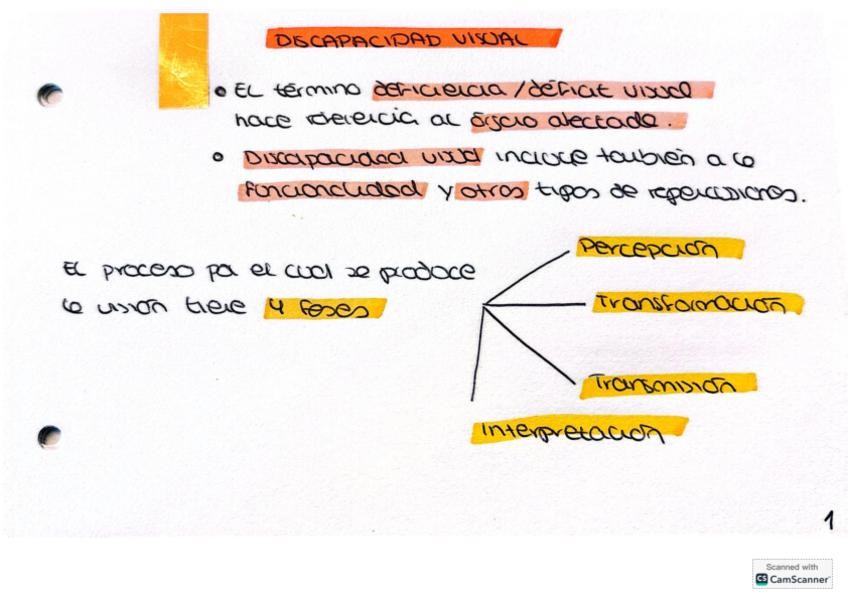 DISCAPACIDAD VISUAL
• El término deficiencia / déficit visual
hace referencia al órgano afectado.
• Discapacidad visual incluye también a la
funcionalidad y otros tipos de repercusiones.
El proceso por el cual se produce
la visión tiene 4 fases
Percepción
Transformación
Transmisión
Interpretación
1
Scanned with
CS CamScanner